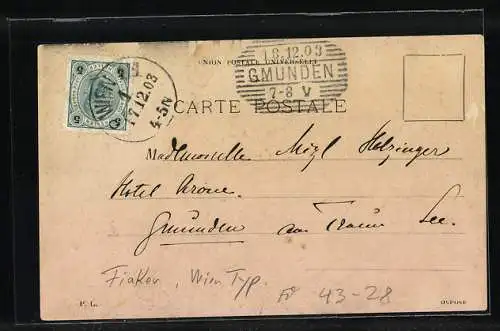 18.12.03
UNION POSTALE UNIVERSELLE
GMUNDEN
7-8 V
WIEN
17.12.03
4-5N
5 5
5 5
CARTE POSTALE
Mademoiselle Mizl Holzinger
Hotel Krone
Gmunden am Traun See.
Fiaker, Wien Typ.
43-28
DÉPOSÉ